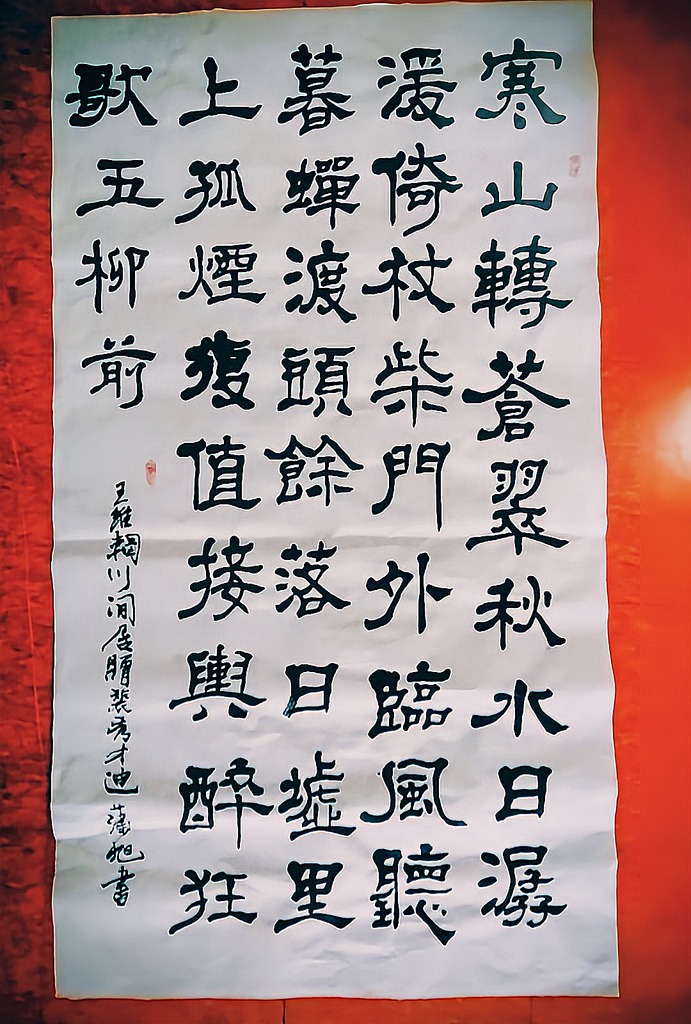 寒山轉蒼翠秋水日潺
湲倚杖柴門外臨風聽
暮蟬渡頭餘落日墟里
上孤煙復值接輿醉狂
歌五柳前
王維輞川閒居贈裴秀才迪 旭書